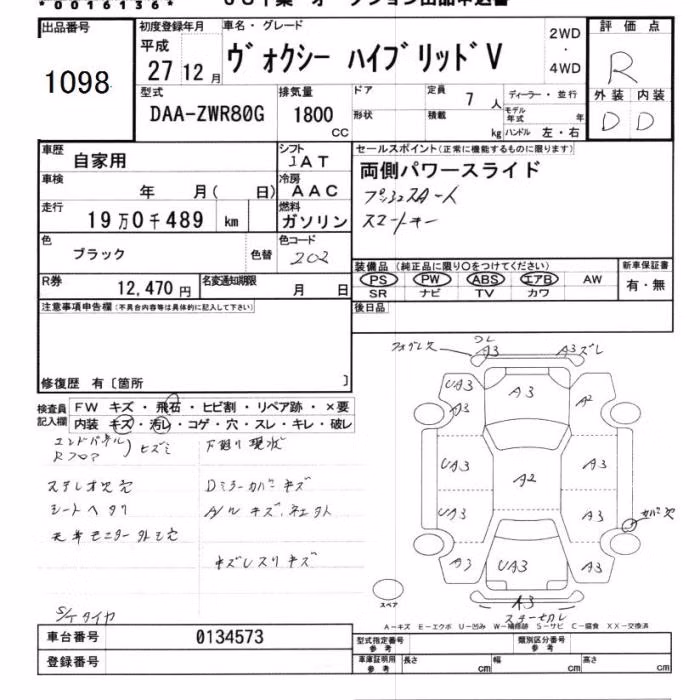 *0016136*
出品番号 初度登録年月 車名・グレード 2WD ・ 4WD 評価点
1098 平成 27 12月 ヴォクシー ハイブリッドV R
型式 排気量 ドア 定員 7 人 ディーラー・並行 外装 内装
DAA-ZWR80G 1800 CC 形状 積載 kg モデル年式 年 D D
ハンドル 左・右
車歴 自家用 シフト 1AT セールスポイント(正常に機能するものに限ります)
車検 年 月( 日) 冷房 AAC 両側パワースライド
走行 19万0千489 km 燃料 ガソリン プッシュスタート
スマートキー
色 ブラック 色替 色コード 202
装備品(純正品に限り○をつけてください) 新車保証書
R券 12,470円 名変通知期限 月 日 PS PW ABS エアB AW 有・無
SR ナビ TV カワ
注意事項申告欄(不具合内容等は具体的に記入して下さい) 後日品
修復歴 有〔箇所 〕
検査員記入欄 FW キズ・飛石・ヒビ割・リペア跡・×要
内装 キズ・汚レ・コゲ・穴・スレ・キレ・破レ
エンドパネル Rフロア ヒズミ 下廻り現状
ステレオ欠穴 Dミラーカバーキズ
シートヘタリ A/Wキズ
天井モニター外し穴
S/Tタイヤ
A3 A3 ズレ
UA3 A3 A3 A2
UA3 A2 A3
UA3 A3 カバー欠
A3 UA3 A3
A3
スペア
A-キズ E-エクボ U-凹み W-補修跡 S-サビ C-腐食 XX-交換済
車台番号 0134573 型式指定番号 参考 類別区分番号 参考
登録番号 車庫証明用 参考 長さ cm 幅 cm 高さ cm